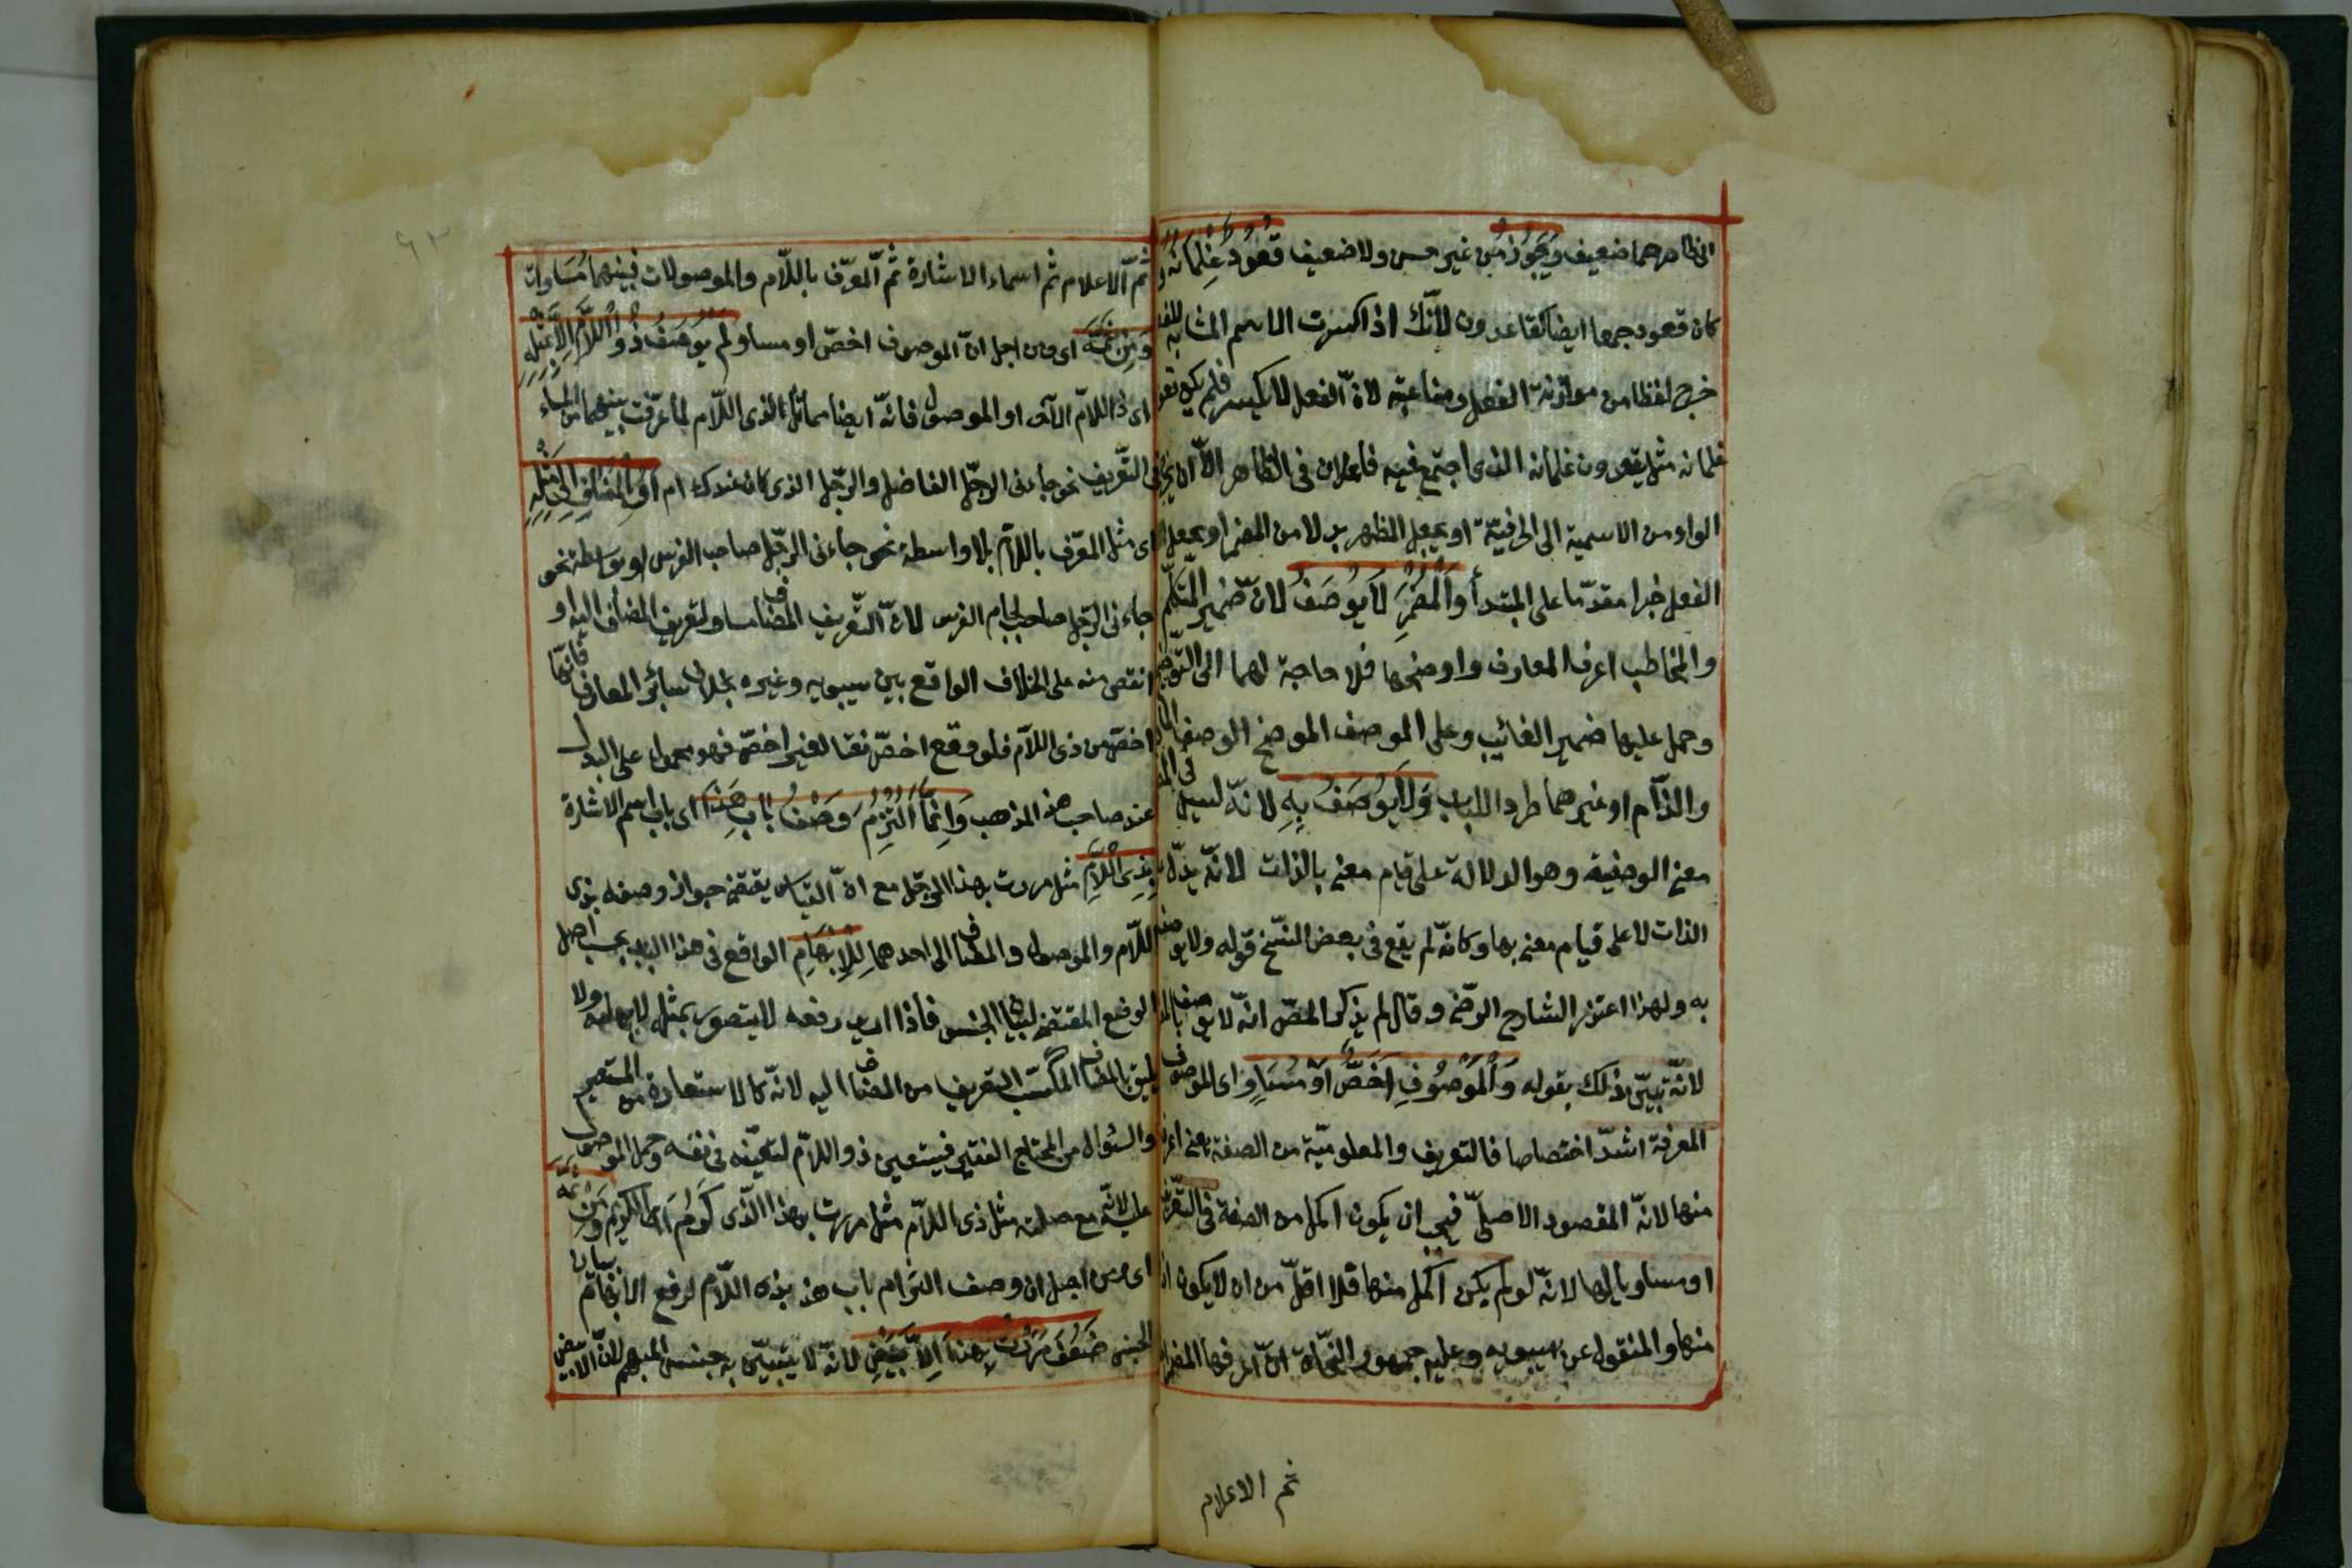 الظاهر هما ضعيف ويجوز من غير حسن ولا ضعيف قعود غلمانه و
كان قعود جمعا ايضا كقاعدون لانّك اذا كسرت الاسم المشابه للفعل
خرج لفظا من موازنة الفعل ومناسبته لانّ الفعل لا يكسر فلم يكن قعود
غلمانه مثل يقعدون غلمانه الذى اجتمع فيه فاعلان فى الظاهر الّا ان يخرج
الواو من الاسمية الى الحرفية او يجعل المظهر بدلا من المضمر او يجعل
الفعل خبرا مقدّما على المبتدأ والمضمر لا يوصف لان ضمير المتكلّم
والمخاطب اعرف المعارف واوضحها فلا حاجة لهما الى التوضيح
وحمل عليها ضمير الغائب وعلى الوصف الموضح الوصف المادح
والذّام او غيرهما طردا للباب ولا يوصف به لانّه ليس فى المضمر
معنى الوصفية وهو الدلالة على قيام معنى بالذات لانّه يدلّ على
الذات لا على قيام معنى بها وكانّه لم يقع فى بعض النسخ قوله ولا يوصف
به ولهذا اعتذر الشارح الرضى وقال لم يذكر المصّ انّه لا يوصف بالمضمر
لانّه تبيّن ذلك بقوله والموصوف اخصّ او مساو اى الموصوف
المعرفة اشدّ اختصاصا فالتعريف والمعلوميّة من الصفة يعنى اعرف
منها لانّه المقصود الاصلىّ فيجب ان يكون اكمل من الصفة فى التعريف
او مساويا لها لانّه لو لم يكن اكمل منها فلا اقلّ من ان لا يكون ادون
منها والمنقول عن سيبويه وعليه جمهور النحاة انّ اعرفها المضمرات
ثم الاعلام
٩٢
ثمّ الاعلام ثم اسماء الاشارة ثمّ المعرّف باللّام والموصولات فبينهما مساواة
ومن ثمّه اى ومن اجل انّ الموصوف اخصّ او مساو لم يوصف ذو اللّام الّا بمثله
اى ذا اللّام الآخر او الموصول فانّه ايضا مماثل لذى اللّام لما عرّفت بينهما من المساواة
فى التّعريف نحو جاءنى الرجل الفاضل والرّجل الذى كان عندك امس او المضاف الى مثله
اى مثل المعرّف باللّام بلا واسطة نحو جاءنى الرّجل صاحب الفرس او بواسطة نحو
جاءنى الرّجل صاحب لجام الفرس لانّ التّعريف المضاف مساو لتعريف المضاف اليه او
انقص منه على الخلاف الواقع بين سيبويه وغيره بخلاف سائر المعارف فانّها
اخصّ من ذى اللّام فلو وقع اخصّ نعتا لغير اخصّ فهو محمول على البدل
عند صاحب هذ المذهب وانّما التزم وصف باب هذا اى باب اسم الاشارة
بذى اللّام مثل مررت بهذا الرجل مع انّ القياس يقتضى جواز وصفه بذى
اللّام والموصول والمضاف الى احدهما للابهام الواقع فى هذا الباب بحسب اصل
الوضع المقتضى لبيان الجنس فاذا اريد رفعه لا يتصور بمثل لابهامه ولا
يليق بالمضاف المكتسب التعريف من المضاف اليه لانّه كالاستعارة من المستعير
والسّئوال من المحتاج الفقير فيتعين ذو اللّام لتعيّنه فى نفسه وحمل الموصول
عليه لانّه مع صلته مثل ذى اللّام مثل مررت بهذا الّذى كرم اى الكريم ومن ثمّه
اى ومن اجل ان وصف التزام باب هذ بذى اللّام لرفع الابهام بيان
الجنس ضعف مررت بهذا الابيض لانّه لا يتبيّن به جنس المبهم لانّ الابيض